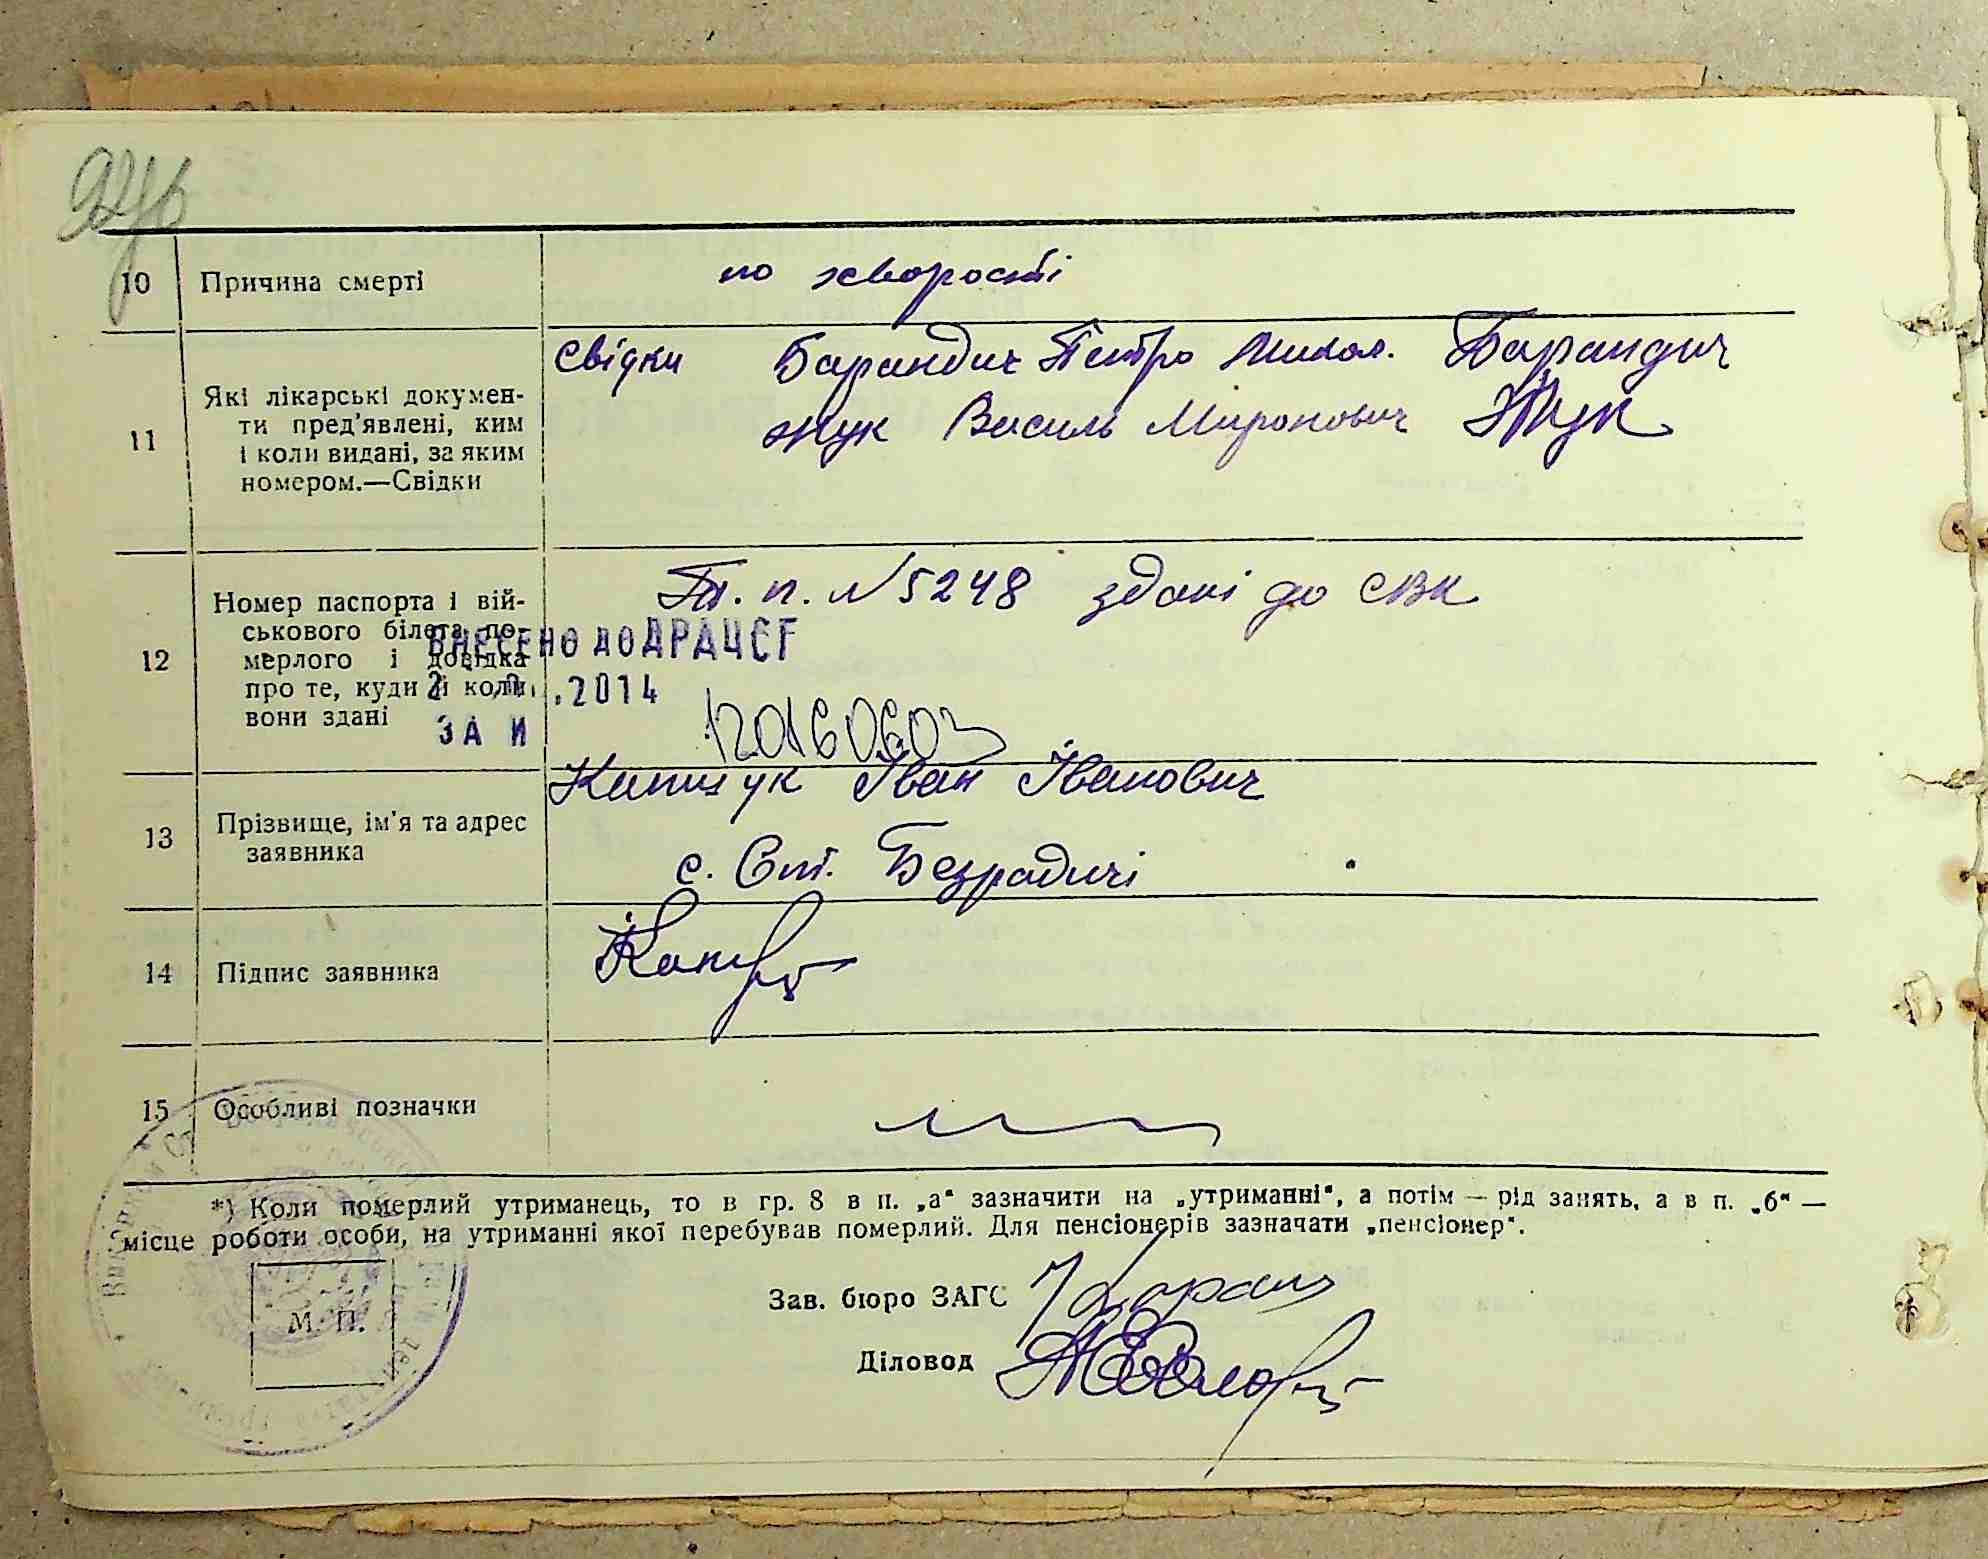 10 Причина смерті по хворості
11 Які лікарські докумен-
ти пред'явлені, ким
і коли видані, за яким
номером.—Свідки
свідки Барандич Петро Микол. Барандич
Жук Василь Миронович Жук
12 Номер паспорта і вій-
ськового білета по-
мерлого і довідка
про те, куди й коли
вони здані
Т. п. №5248 здані до СВК
ВНЕСЕНО ДО ДРАЦСГ
.2014
ЗА И 12016060
13 Прізвище, ім'я та адрес
заявника
Іван Іванович
с. Ст. Безрадичі
14 Підпис заявника
15 Особливі позначки
*) Коли померлий утриманець, то в гр. 8 в п. „а“ зазначити на „утриманні“, а потім — рід занять, а в п. „б“ —
місце роботи особи, на утриманні якої перебував померлий. Для пенсіонерів зазначати „пенсіонер“.
М. П.
Зав. бюро ЗАГС
Діловод